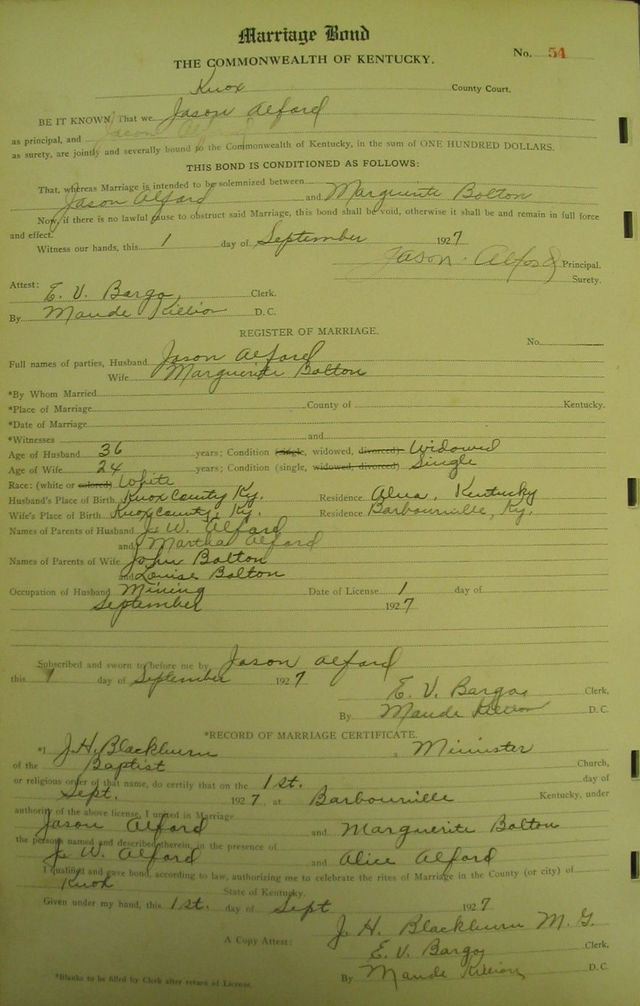 Marriage Bond
THE COMMONWEALTH OF KENTUCKY.
No. 54
Knox County Court.
BE IT KNOWN, That we Jason Alford
as principal, and Jason Alford
as surety, are jointly and severally bound to the Commonwealth of Kentucky, in the sum of ONE HUNDRED DOLLARS.
THIS BOND IS CONDITIONED AS FOLLOWS:
That, whereas Marriage is intended to be solemnized between
Jason Alford and Marguerite Bolton
Now, if there is no lawful cause to obstruct said Marriage, this bond shall be void, otherwise it shall be and remain in full force
and effect.
Witness our hands, this 1 day of September 1927
Jason Alford Principal.
Surety.
Attest:
E. V. Bargo, Clerk.
By Maude Killion D. C.
REGISTER OF MARRIAGE.
No.
Full names of parties, Husband Jason Alford
Wife Marguerite Bolton
*By Whom Married
*Place of Marriage County of Kentucky.
*Date of Marriage
*Witnesses and
Age of Husband 36 years; Condition (single, widowed, divorced) Widowed
Age of Wife 24 years; Condition (single, widowed, divorced) Single
Race: (white or colored) White
Husband's Place of Birth Knox County Ky. Residence Kentucky
Wife's Place of Birth Knox County, Ky. Residence Barbourville, Ky.
Names of Parents of Husband J. W. Alford
and Martha Alford
Names of Parents of Wife John Bolton
and Louise Bolton
Occupation of Husband Mining Date of License 1 day of
September 1927
Subscribed and sworn to before me by Jason Alford
this 1 day of September 1927
E. V. Bargo, Clerk,
By Maude Killion D. C.
*RECORD OF MARRIAGE CERTIFICATE.
*I J. H. Blackburn a Minister
of the Baptist Church,
or religious order of that name, do certify that on the 1st. day of
Sept. 1927, at Barbourville Kentucky, under
authority of the above license, I united in Marriage
Jason Alford and Marguerite Bolton
the persons named and described therein, in the presence of
J. W. Alford and Alice Alford
I qualified and gave bond, according to law, authorizing me to celebrate the rites of Marriage in the County (or city) of
Knox State of Kentucky.
Given under my hand, this 1st. day of Sept 1927
J. H. Blackburn M. G.
A Copy Attest: E. V. Bargo Clerk,
By Maude Killion D. C.
*Blanks to be filled by Clerk after return of License.